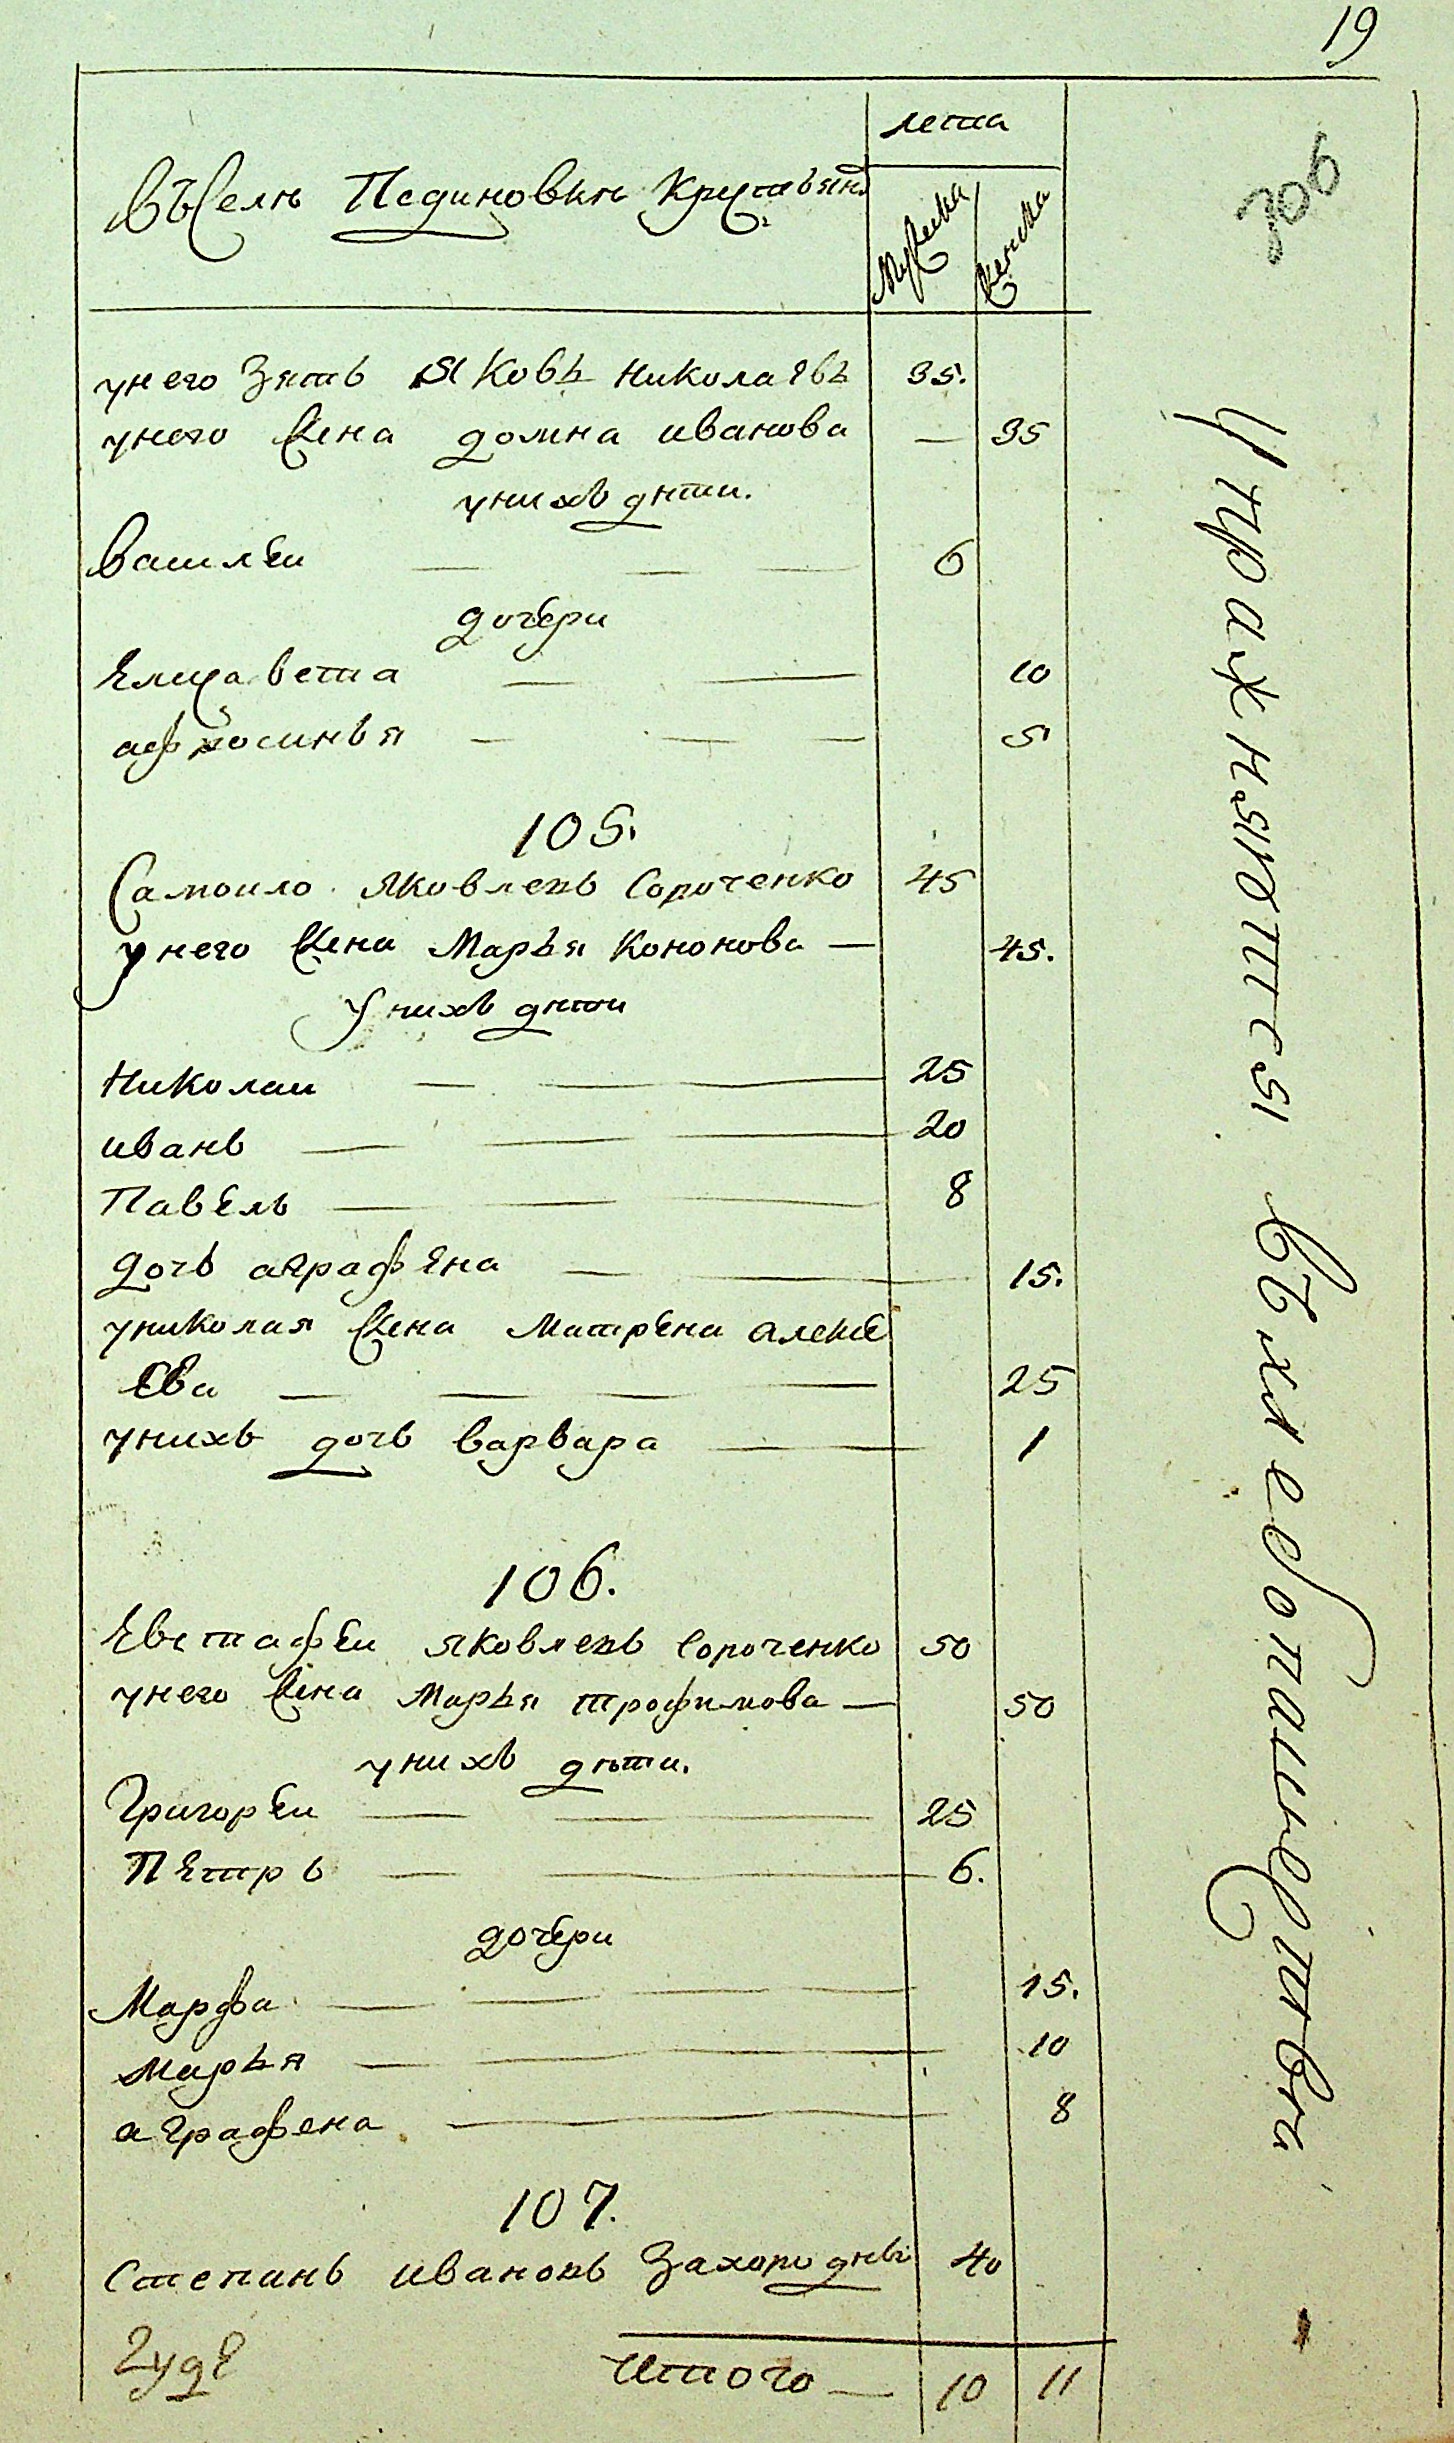 19
лета
въ Селѣ Пединовкѣ Крестьянъ
Мужеска
Женска
306
у него Зять Яковъ Николаевъ 35.
у него Жена домна иванова — 35
у нихъ дѣти.
Василеи 6
дочери
Елисавета 10
афросинья 5
105.
Самоило Яковлевъ Сороченко 45
у него Жена Марья Кононова — 45.
У нихъ дѣти
Николаи 25
иванъ 20
Павелъ 8
дочь аграфена 15.
у николая Жена Матрена алексе
ева 25
у нихъ дочь варвара 1
106.
Евстафеи Яковлевъ Сороченко 50
у него Жена Марья трофимова — 50
у нихъ дѣти.
Григореи 25
Петръ 6.
дочери
Марфа 15.
Марья 10
аграфена 8
107.
Степанъ ивановъ Захородны 40
Итого — 10 11
Упражняются въ хлебопашествѣ